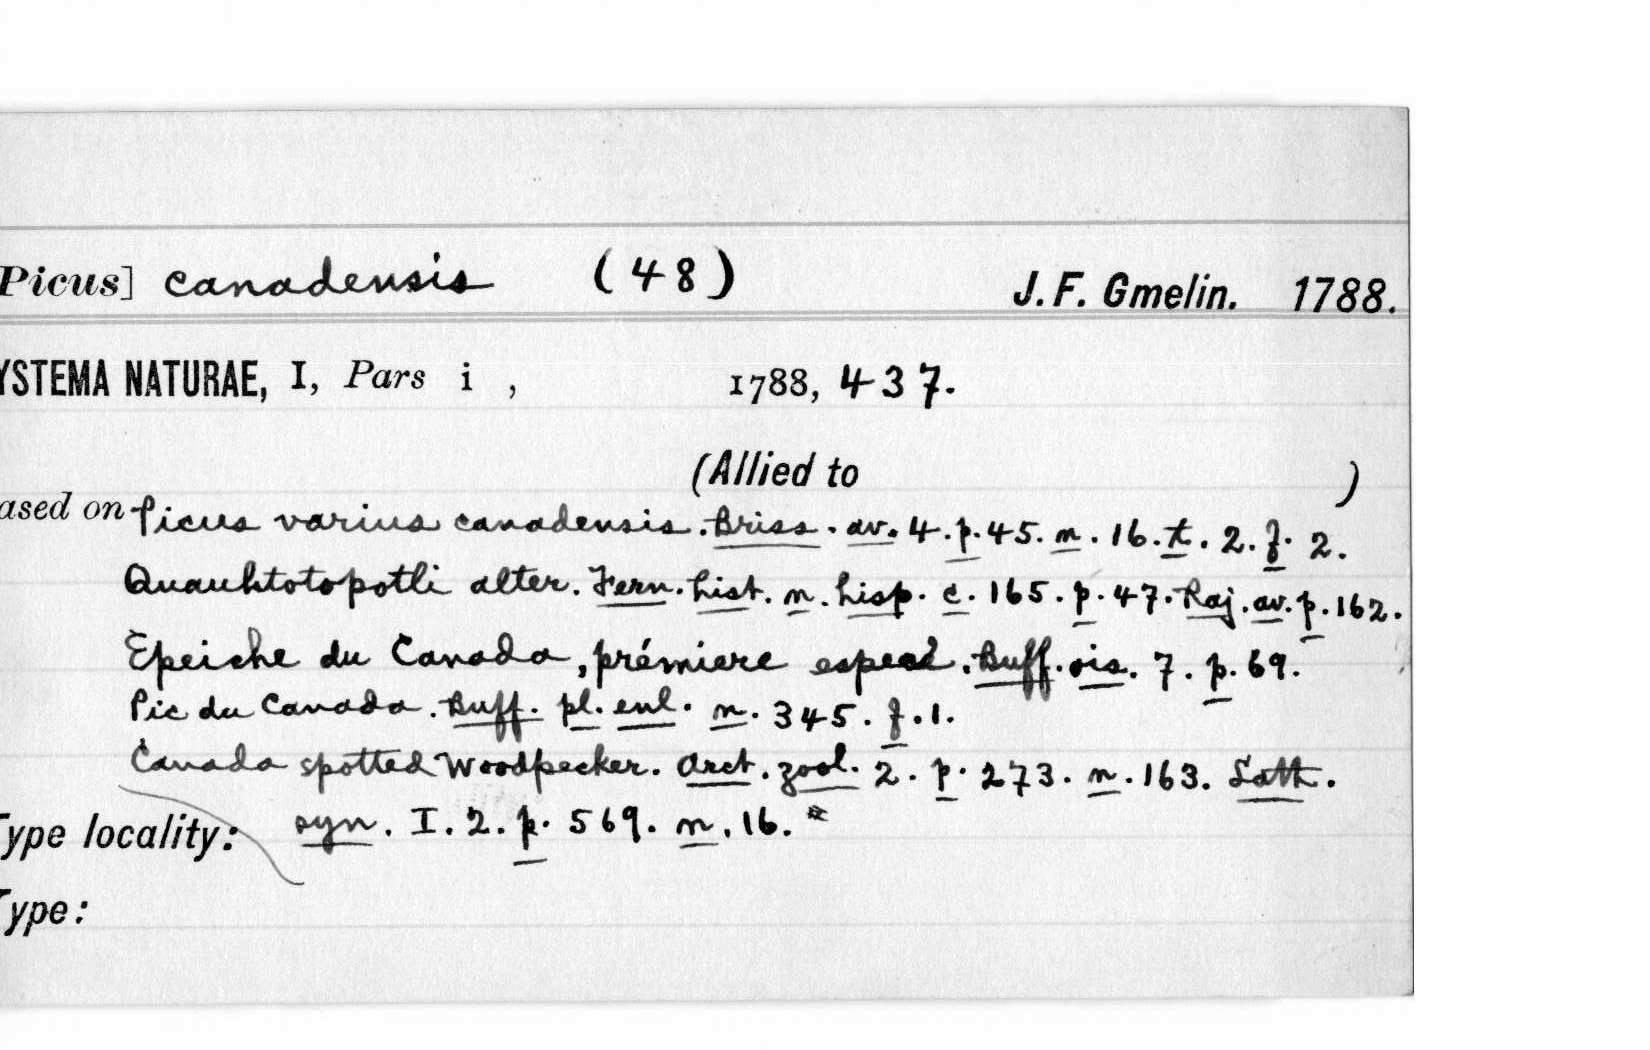 Picus] canadensis (48) J. F. Gmelin. 1788.
YSTEMA NATURAE, I, Pars i , 1788, 437.
(Allied to )
ased on Picus varius canadensis. Briss. av. 4. p. 45. n. 16. t. 2. f. 2.
Quauhtotopotli alter. Fern. hist. n. hisp. c. 165. p. 47. Raj. av. p. 162.
Epeiche du Canada, prémiere espece. Buff. ois. 7. p. 69.
Pic du Canada. Buff. pl. enl. n. 345. f. 1.
Canada spotted Woodpecker. Arct. zool. 2. p. 273. n. 163. Lath.
Type locality: syn. I. 2. p. 569. n. 16. *
Type: